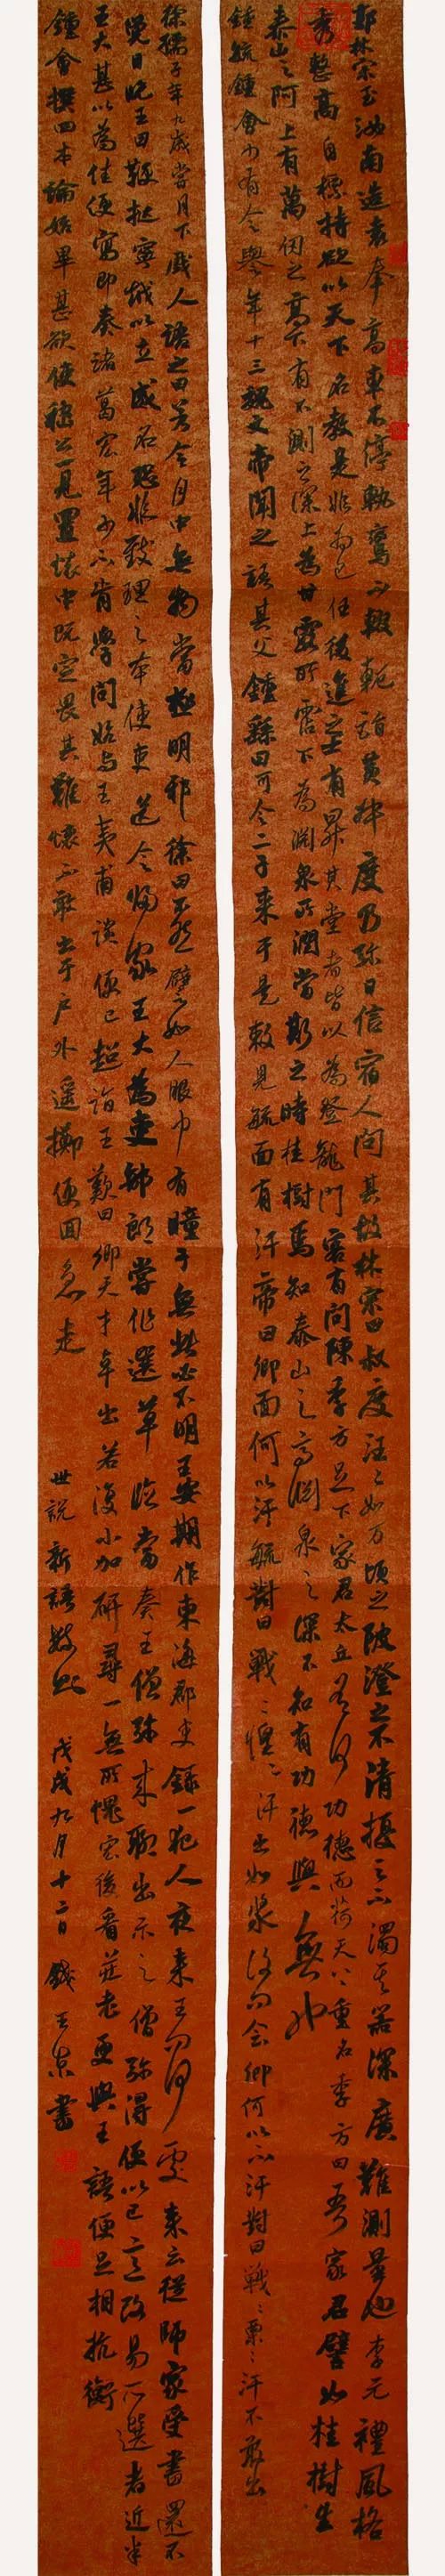 郭林宗至汝南造袁奉高車不停軌鸞不輟軛詣黃叔度乃彌日信宿人問其故林宗曰叔度汪汪如万頃之陂澄之不清擾之不濁其器深廣難測量也李元禮風格
秀整高自標持欲以天下名教是非為己任後進之士有昇其堂者皆以為登龍門客有問陳季方足下家君太丘有何功德而荷天下重名季方曰吾家君譬如桂樹生
泰山之阿上有萬仞之高下有不測之深上為甘露所霑下為淵泉所潤當斯之時桂樹焉知泰山之高淵泉之深不知有功德與無也
鍾毓鍾會少有令譽年十三魏文帝聞之語其父鍾繇曰可令二子來于是敕見毓面有汗帝曰卿面何以汗毓對曰戰戰惶惶汗出如漿復問会卿何以不汗對曰戰戰栗栗汗不敢出
徐孺子年九歲嘗月下戲人語之曰若令月中無物當極明邪徐曰不然譬如人眼中有瞳子無此必不明王安期作東海郡吏錄一犯人夜來王問何處來云從師家受書還不
覺日晚王曰鞭撻甯越以立威名恐非致理之本使吏送令歸家王大為吏部郎嘗作選草臨當奏王僧彌來聊出示之僧彌得便以己意改易所選者近半
王大甚以為佳便寫即奏諸葛宏年少不肯學問始与王夷甫談便已超詣王歎曰卿天才卓出若復小加研尋一無所愧宏後看莊老更與王語便足相抗衡
鍾會撰四本論始畢甚欲使嵇公一見置懷中既定畏其難懷不敢出于戶外遥擲便回急走
世說新語數則 戊戌九月十二日 錢玉京書